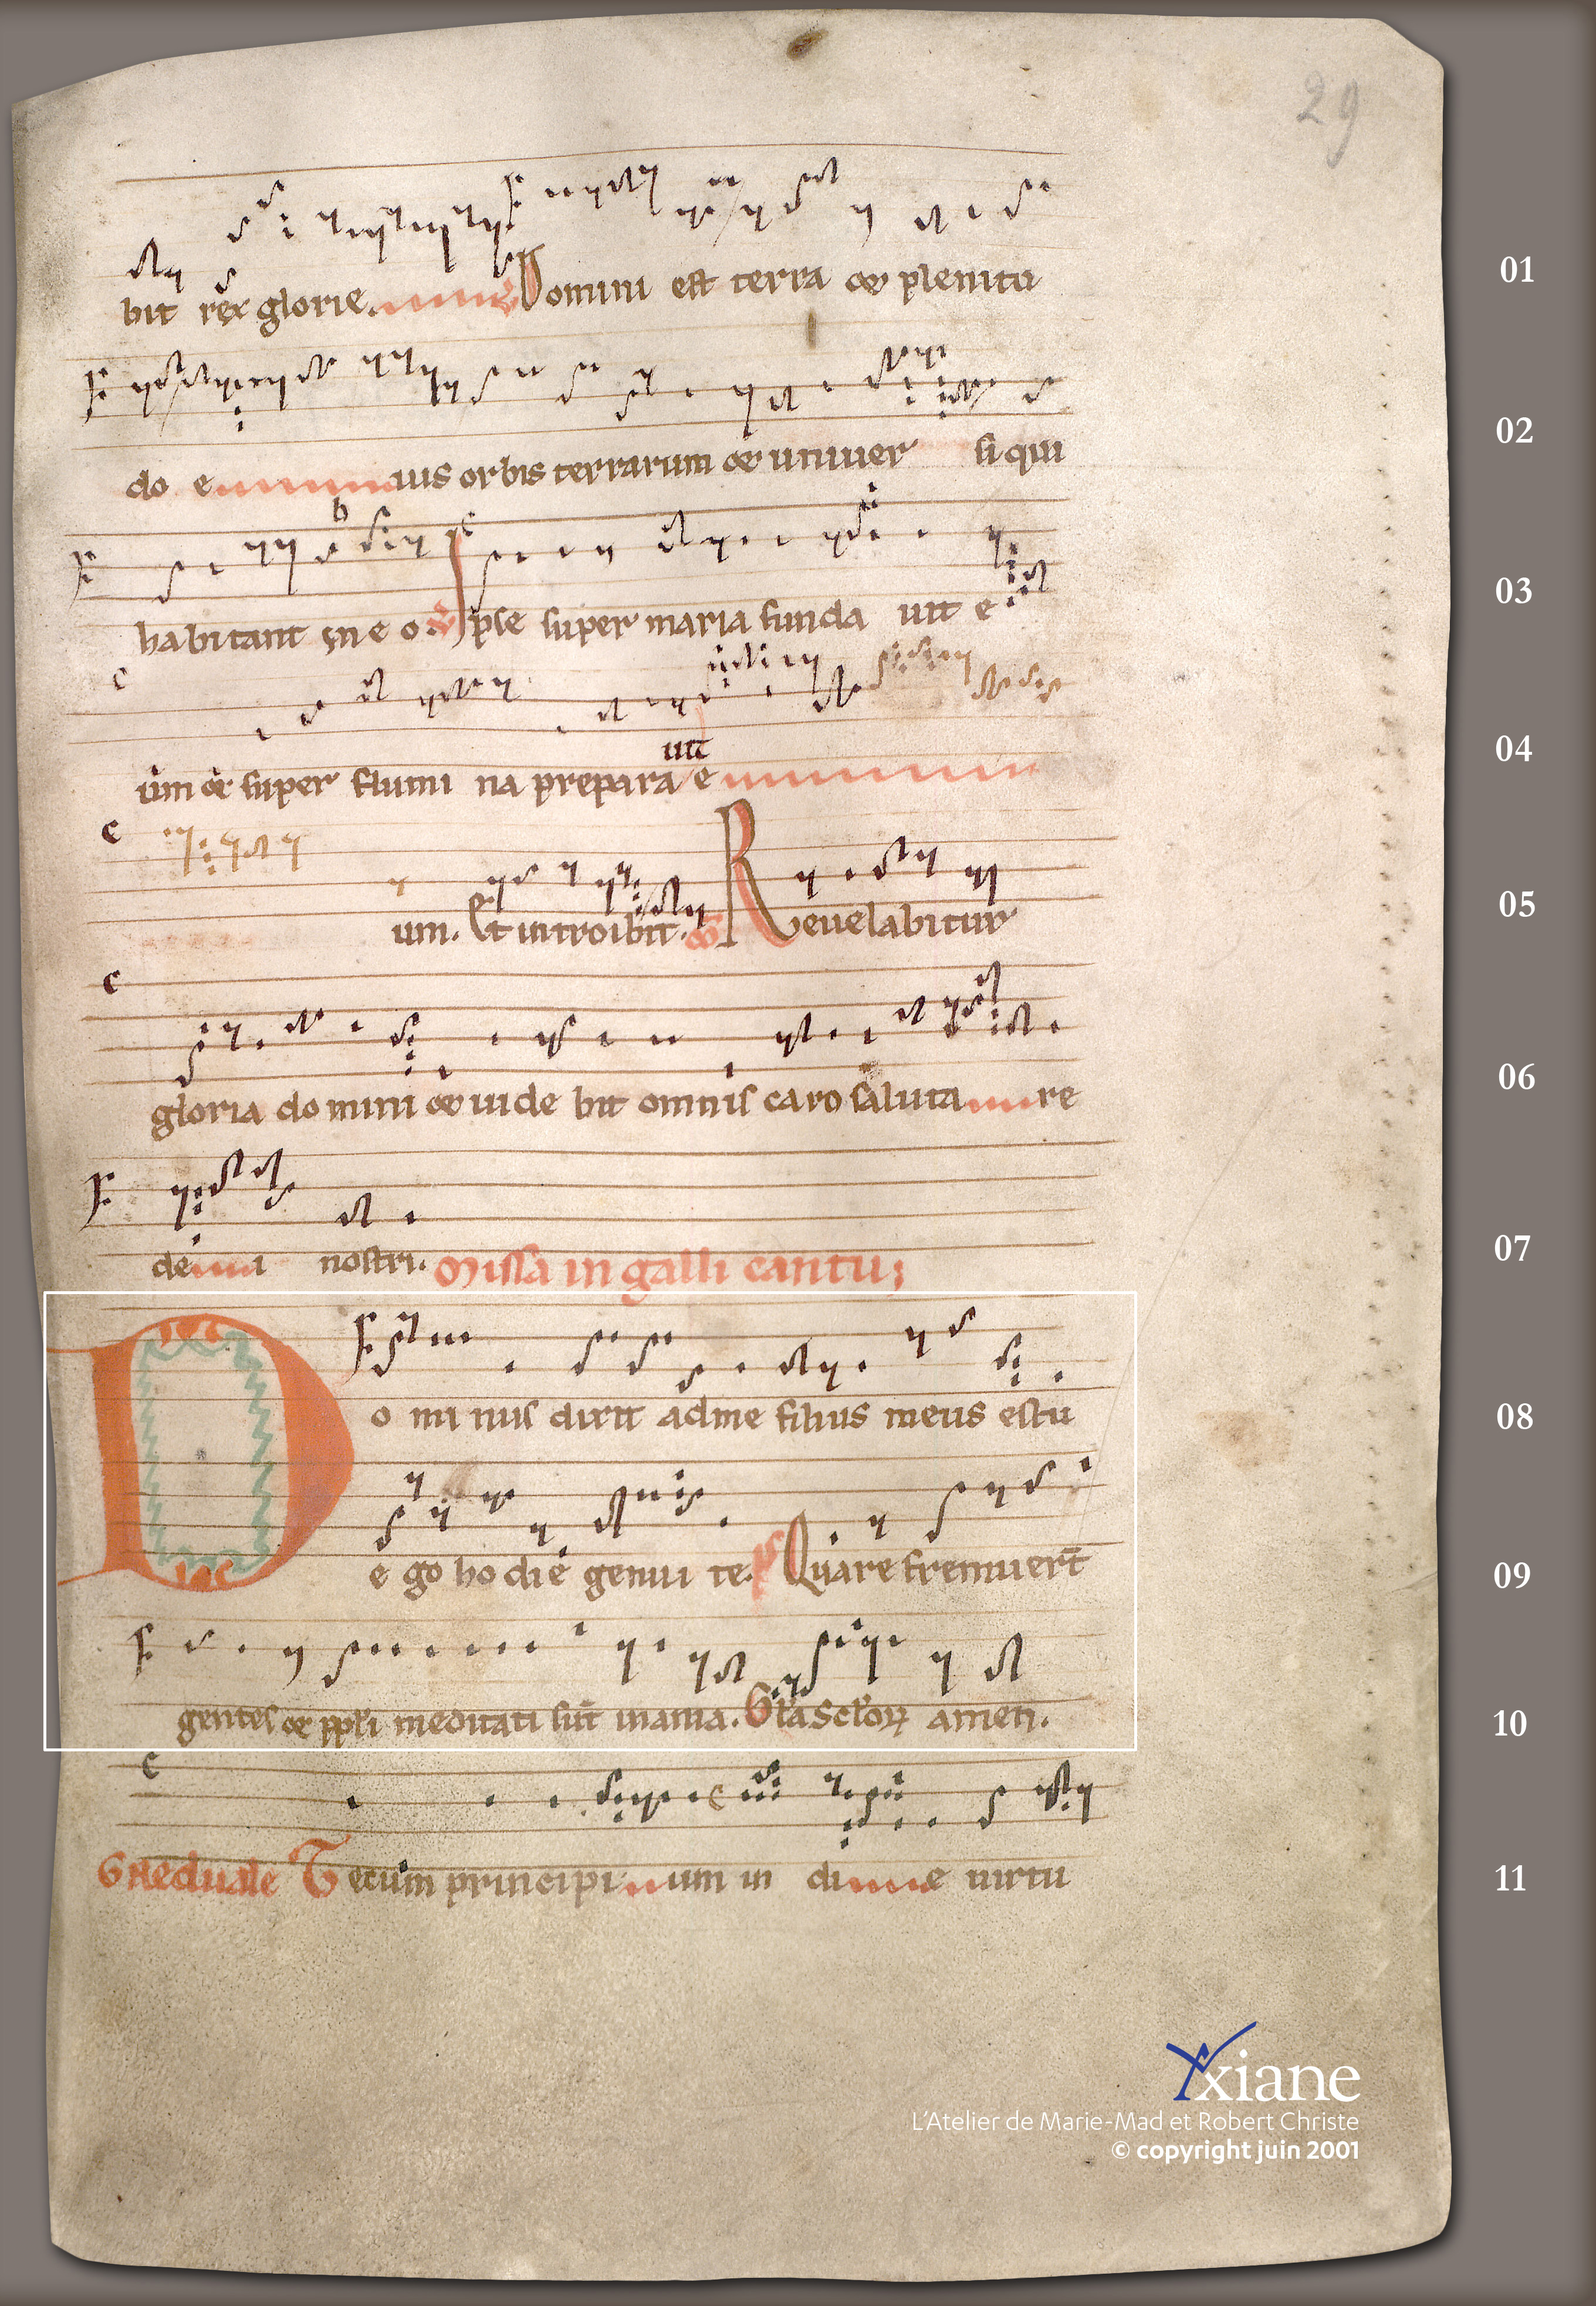 29
bit rex glorie. Domini est terra et plenitu
01
do e ius orbis terrarum et univer si qui
02
habitant in e o. Ipse super maria funda vit e
03
um et super flumi na prepara e
vit
04
um. Et introibit. Revelabitur
05
gloria domini et vide bit omnis caro saluta re
06
de i nostri. Missa in galli cantu;
07
Do mi nus dixit ad me filius meus es tu
08
e go ho di e genui te. ps Quare fremuert̄
09
gentes et ppl'i meditati sūt inania. Gl'a Sc'lor̄ amen.
10
Graeduale Tecum principi um in di e virtu
11
xiane
L'Atelier de Marie-Mad et Robert Christe
© copyright juin 2001